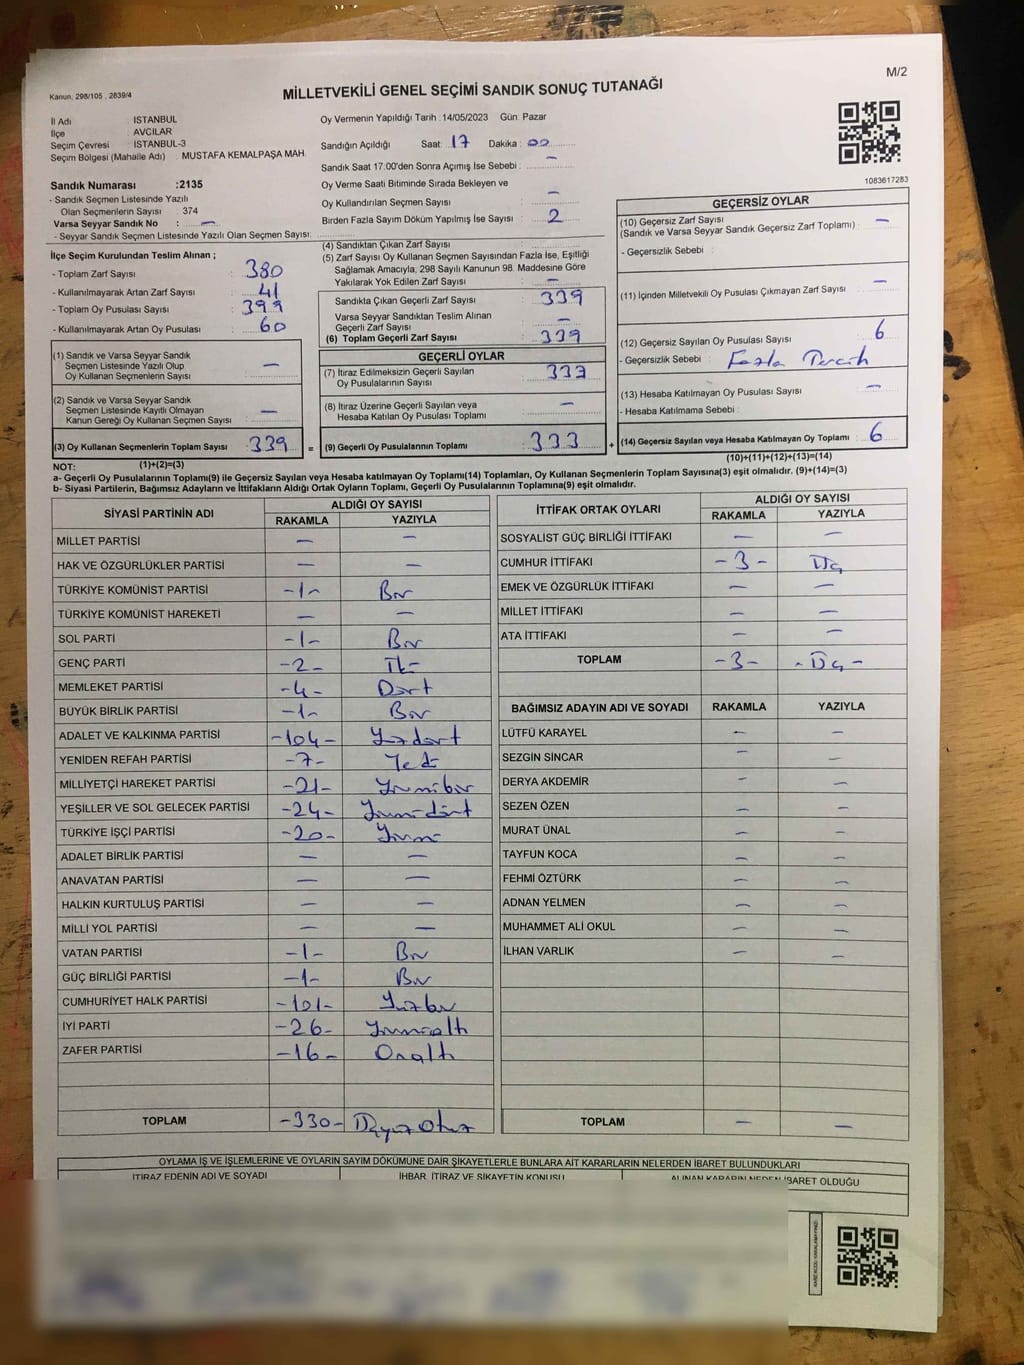 M/2
Kanun; 298/105 , 2839/4
MİLLETVEKİLİ GENEL SEÇİMİ SANDIK SONUÇ TUTANAĞI
İl Adı : İSTANBUL
İlçe : AVCILAR
Seçim Çevresi : İSTANBUL-3
Seçim Bölgesi (Mahalle Adı) : MUSTAFA KEMALPAŞA MAH.
Sandık Numarası :2135
- Sandık Seçmen Listesinde Yazılı
Olan Seçmenlerin Sayısı : 374
Varsa Seyyar Sandık No : —
- Seyyar Sandık Seçmen Listesinde Yazılı Olan Seçmen Sayısı:
Oy Vermenin Yapıldığı Tarih :14/05/2023 Gün: Pazar
Sandığın Açıldığı Saat: 17 Dakika : 00
Sandık Saat 17:00'den Sonra Açımış İse Sebebi : —
Oy Verme Saati Bitiminde Sırada Bekleyen ve
Oy Kullandırılan Seçmen Sayısı : —
Birden Fazla Sayım Döküm Yapılmış İse Sayısı : 2
1083617283
İlçe Seçim Kurulundan Teslim Alınan ;
- Toplam Zarf Sayısı : 380
- Kullanılmayarak Artan Zarf Sayısı : 41
- Toplam Oy Pusulası Sayısı : 399
- Kullanılmayarak Artan Oy Pusulası : 60
(1) Sandık ve Varsa Seyyar Sandık
Seçmen Listesinde Yazılı Olup
Oy Kullanan Seçmenlerin Sayısı : —
(2) Sandık ve Varsa Seyyar Sandık
Seçmen Listesinde Kayıtlı Olmayan
Kanun Gereği Oy Kullanan Seçmen Sayısı : —
(3) Oy Kullanan Seçmenlerin Toplam Sayısı : 339
(4) Sandıktan Çıkan Zarf Sayısı :
(5) Zarf Sayısı Oy Kullanan Seçmen Sayısından Fazla İse, Eşitliği
Sağlamak Amacıyla, 298 Sayılı Kanunun 98. Maddesine Göre
Yakılarak Yok Edilen Zarf Sayısı : —
Sandıkta Çıkan Geçerli Zarf Sayısı : 339
Varsa Seyyar Sandıktan Teslim Alınan
Geçerli Zarf Sayısı : —
(6) Toplam Geçerli Zarf Sayısı : 339
GEÇERLİ OYLAR
(7) İtiraz Edilmeksizin Geçerli Sayılan
Oy Pusulalarının Sayısı : 333
(8) İtiraz Üzerine Geçerli Sayılan veya
Hesaba Katılan Oy Pusulası Toplamı : —
= (9) Geçerli Oy Pusulalarının Toplamı : 333 +
GEÇERSİZ OYLAR
(10) Geçersiz Zarf Sayısı —
(Sandık ve Varsa Seyyar Sandık Geçersiz Zarf Toplamı) :
- Geçersizlik Sebebi :
(11) İçinden Milletvekili Oy Pusulası Çıkmayan Zarf Sayısı : —
(12) Geçersiz Sayılan Oy Pusulası Sayısı : 6
- Geçersizlik Sebebi : Fazla Tercih
(13) Hesaba Katılmayan Oy Pusulası Sayısı : —
- Hesaba Katılmama Sebebi :
(14) Geçersiz Sayılan veya Hesaba Katılmayan Oy Toplamı : 6
NOT: (1)+(2)=(3)
(10)+(11)+(12)+(13)=(14)
a- Geçerli Oy Pusulalarının Toplamı(9) ile Geçersiz Sayılan veya Hesaba katılmayan Oy Toplamı(14) Toplamları, Oy Kullanan Seçmenlerin Toplam Sayısına(3) eşit olmalıdır. (9)+(14)=(3)
b- Siyasi Partilerin, Bağımsız Adayların ve İttifakların Aldığı Ortak Oyların Toplamı, Geçerli Oy Pusulalarının Toplamına(9) eşit olmalıdır.
SİYASİ PARTİNİN ADI ALDIĞI OY SAYISI
RAKAMLA YAZIYLA
MİLLET PARTİSİ — —
HAK VE ÖZGÜRLÜKLER PARTİSİ — —
TÜRKİYE KOMÜNİST PARTİSİ -1- Bir
TÜRKİYE KOMÜNİST HAREKETİ — —
SOL PARTİ -1- Bir
GENÇ PARTİ -2- İki
MEMLEKET PARTİSİ -4- Dört
BÜYÜK BİRLİK PARTİSİ -1- Bir
ADALET VE KALKINMA PARTİSİ -104- Yüzdört
YENİDEN REFAH PARTİSİ -7- Yedi
MİLLİYETÇİ HAREKET PARTİSİ -21- Yirmibir
YEŞİLLER VE SOL GELECEK PARTİSİ -24- Yirmidört
TÜRKİYE İŞÇİ PARTİSİ -20- Yirmi
ADALET BİRLİK PARTİSİ — —
ANAVATAN PARTİSİ — —
HALKIN KURTULUŞ PARTİSİ — —
MİLLİ YOL PARTİSİ — —
VATAN PARTİSİ -1- Bir
GÜÇ BİRLİĞİ PARTİSİ -1- Bir
CUMHURİYET HALK PARTİSİ -101- Yüzbir
İYİ PARTİ -26- Yirmialtı
ZAFER PARTİSİ -16- Onaltı
TOPLAM -330- Üçyüzotuz
İTTİFAK ORTAK OYLARI ALDIĞI OY SAYISI
RAKAMLA YAZIYLA
SOSYALİST GÜÇ BİRLİĞİ İTTİFAKI — —
CUMHUR İTTİFAKI -3- Üç
EMEK VE ÖZGÜRLÜK İTTİFAKI — —
MİLLET İTTİFAKI — —
ATA İTTİFAKI — —
TOPLAM -3- -Üç-
BAĞIMSIZ ADAYIN ADI VE SOYADI RAKAMLA YAZIYLA
LÜTFÜ KARAYEL — —
SEZGİN SİNCAR — —
DERYA AKDEMİR — —
SEZEN ÖZEN — —
MURAT ÜNAL — —
TAYFUN KOCA — —
FEHMİ ÖZTÜRK — —
ADNAN YELMEN — —
MUHAMMET ALİ OKUL — —
İLHAN VARLIK — —
TOPLAM — —
OYLAMA İŞ VE İŞLEMLERİNE VE OYLARIN SAYIM DÖKÜMÜNE DAİR ŞİKAYETLERLE BUNLARA AİT KARARLARIN NELERDEN İBARET BULUNDUKLARI
İTİRAZ EDENİN ADI VE SOYADI İHBAR, İTİRAZ VE ŞİKAYETİN KONUSU ALINAN KARARIN NEDEN İBARET OLDUĞU